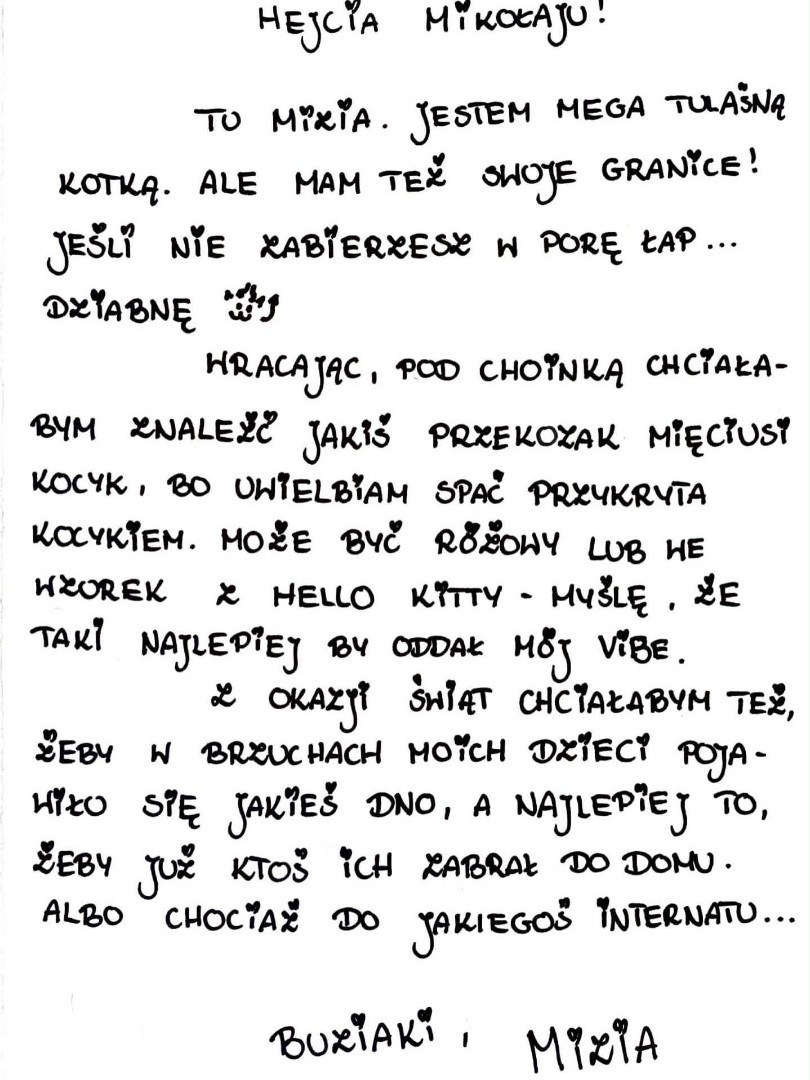 HEJCIA MIKOŁAJU!
TU MIZIA. JESTEM MEGA TULAŚNĄ
KOTKĄ. ALE MAM TEŻ SWOJE GRANICE!
JEŚLI NIE ZABIERZESZ W PORĘ ŁAP...
DZIABNĘ
WRACAJĄC, POD CHOINKĄ CHCIAŁA-
BYM ZNALEŹĆ JAKIŚ PRZEKOZAK MIĘCIUSI
KOCYK, BO UWIELBIAM SPAĆ PRZYKRYTA
KOCYKIEM. MOŻE BYĆ RÓŻOWY LUB WE
WZOREK Z HELLO KITTY - MYŚLĘ, ŻE
TAKI NAJLEPIEJ BY ODDAŁ MÓJ VIBE.
Z OKAZJI ŚWIĄT CHCIAŁABYM TEŻ,
ŻEBY W BRZUCHACH MOICH DZIECI POJA-
WIŁO SIĘ JAKIEŚ DNO, A NAJLEPIEJ TO,
ŻEBY JUŻ KTOŚ ICH ZABRAŁ DO DOMU.
ALBO CHOCIAŻ DO JAKIEGOŚ INTERNATU...
BUZIAKI, MIZIA